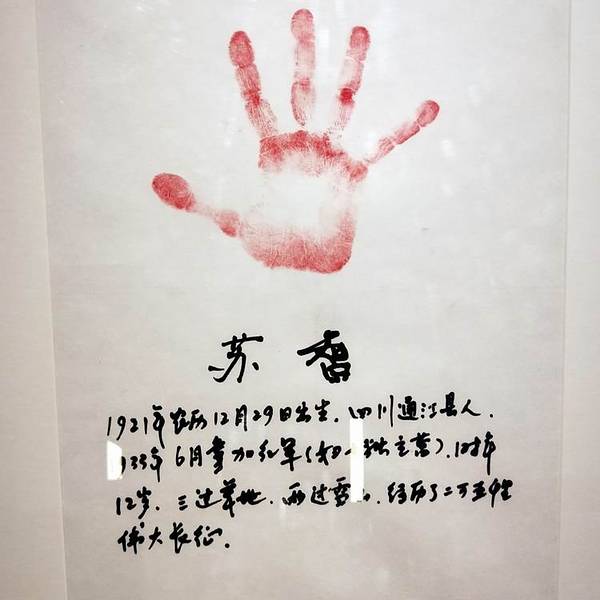 苏智
1921年农历12月29日出生.四川通江县人.
933年6月参加红军(妇 独立营).时年
12岁.三过草地.两过雪 .经历了二万五千里
伟大长征.